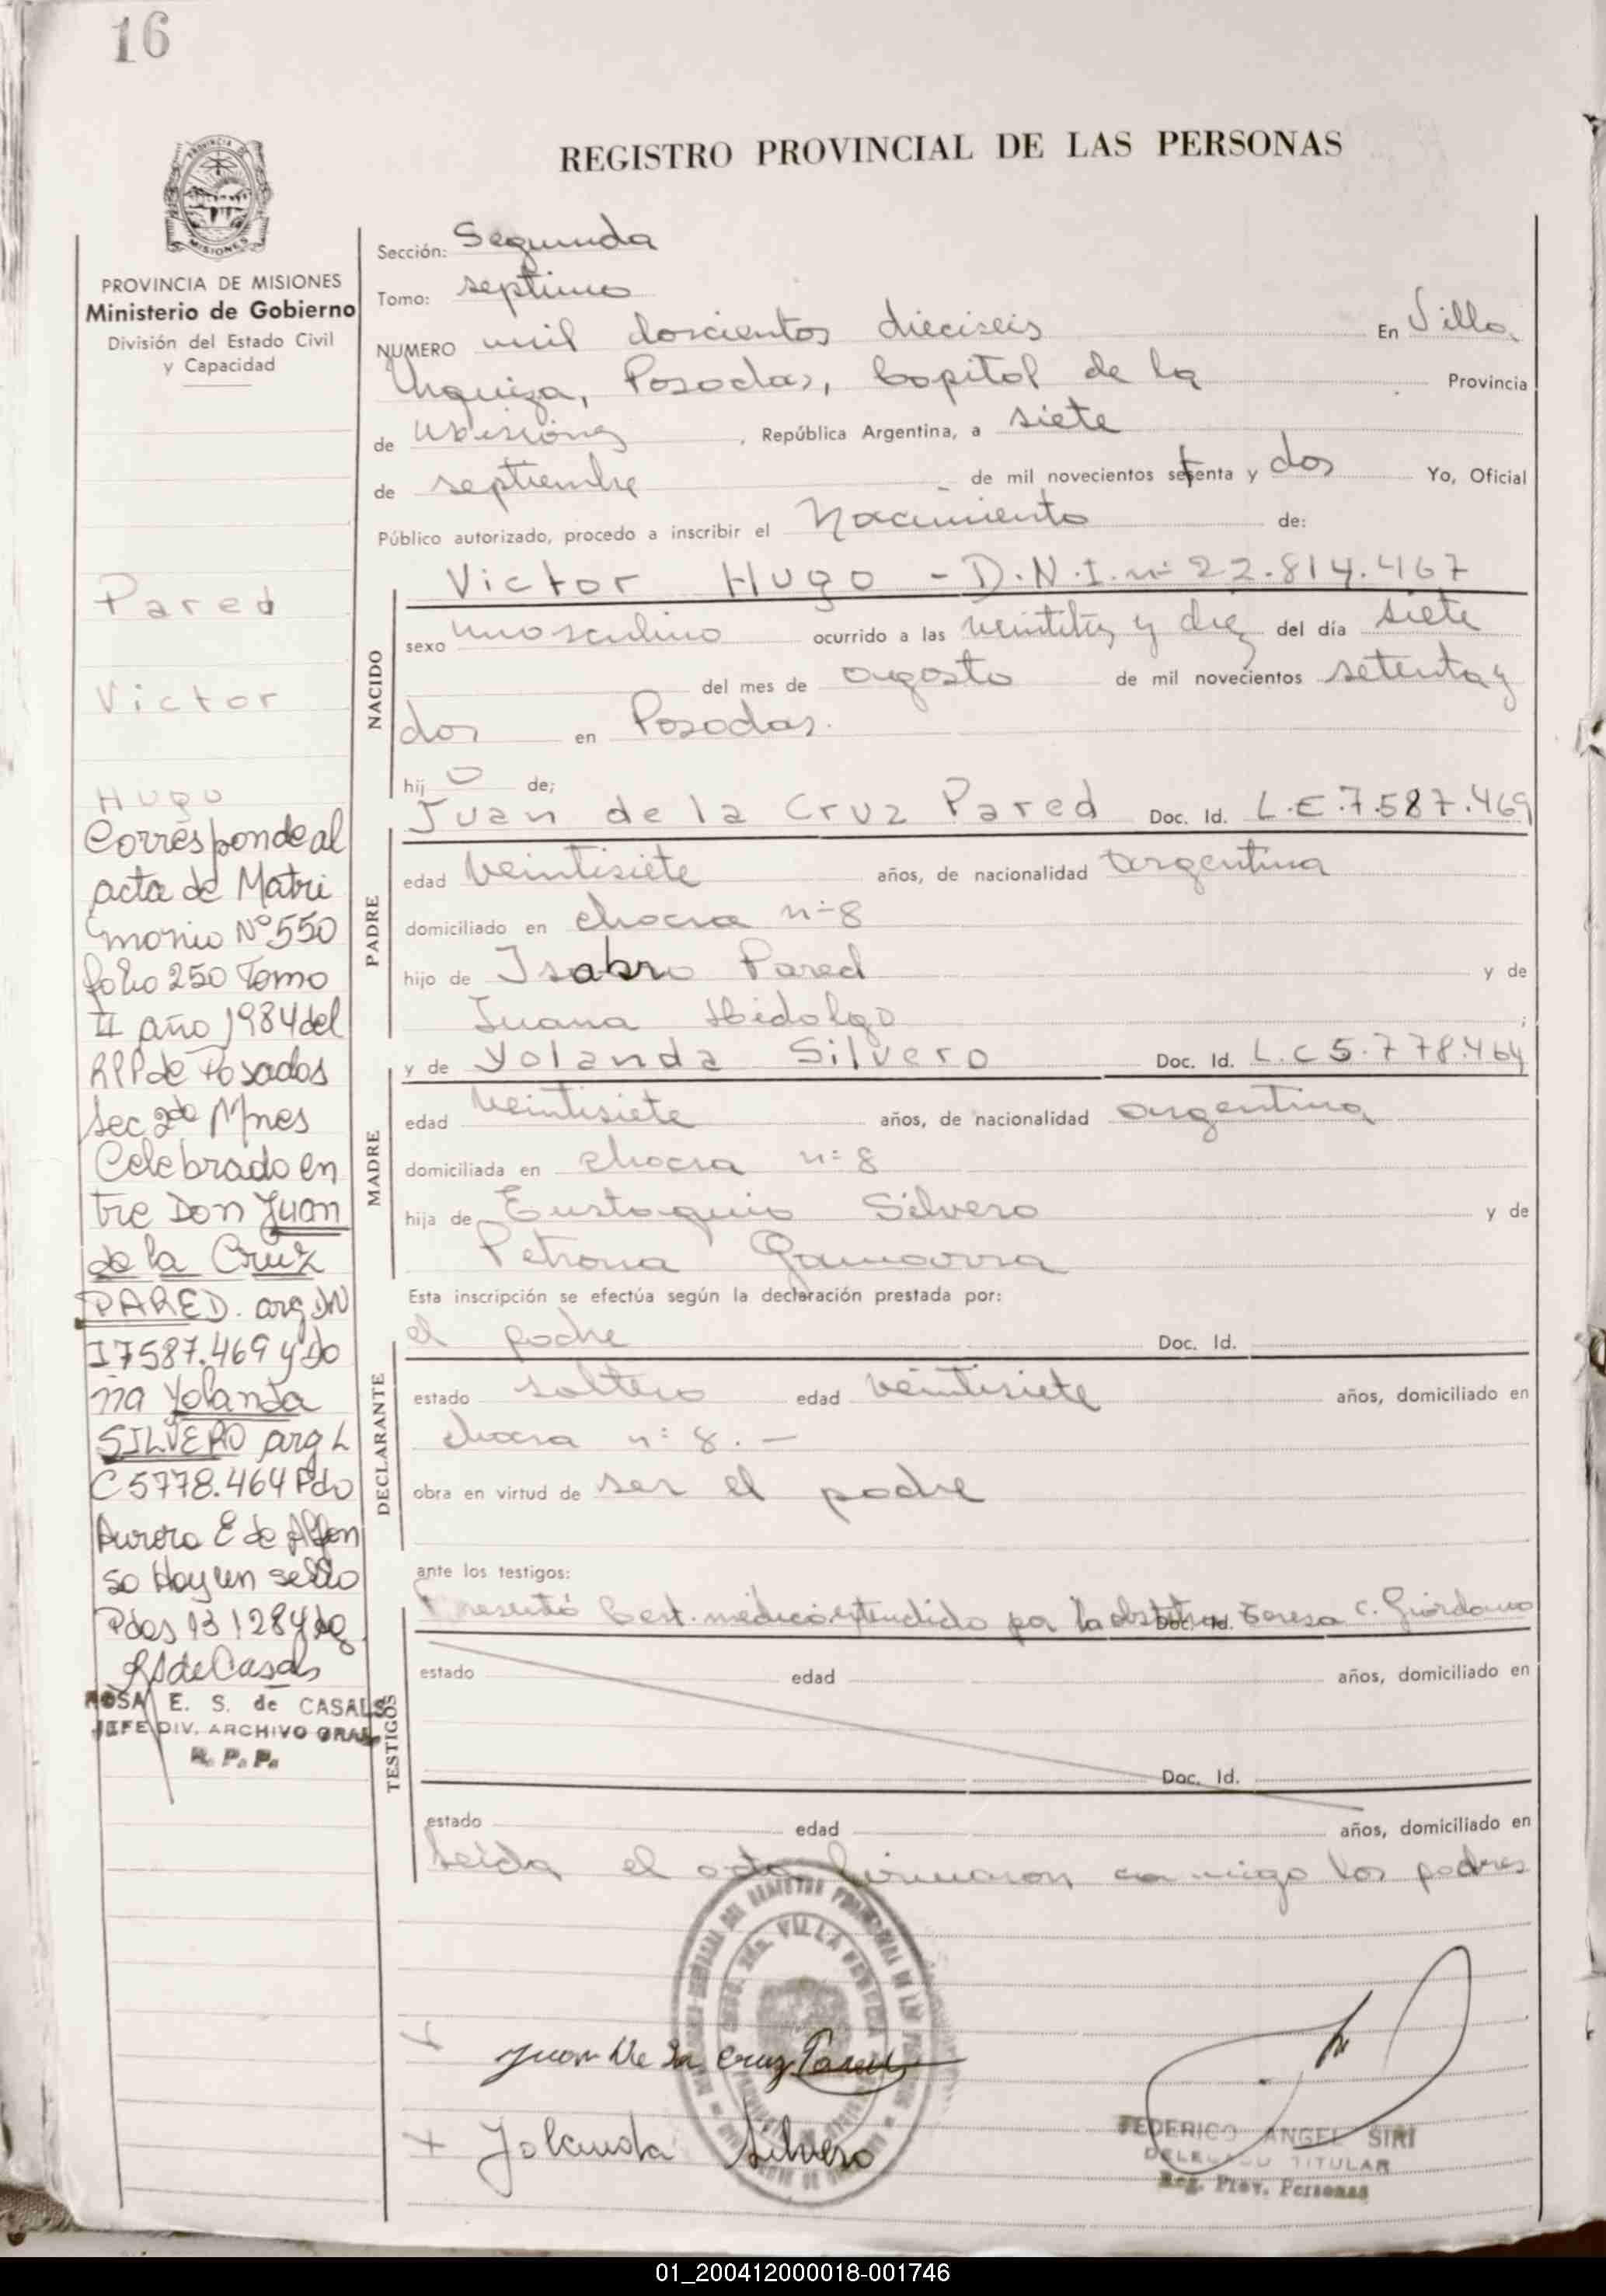 16
REGISTRO PROVINCIAL DE LAS PERSONAS
PROVINCIA DE MISIONES
Ministerio de Gobierno
División del Estado Civil
y Capacidad
Sección: Segunda
Tomo: septimo
NUMERO mil doscientos dieciseis En Villa
Urquiza, Posadas, Capital de la Provincia
de Misiones, República Argentina, a siete
de septiembre de mil novecientos setenta y dos Yo, Oficial
Público autorizado, procedo a inscribir el Nacimiento de:
Victor Hugo - D.N.I. nº 22.814.467
NACIDO
sexo masculino ocurrido a las veintitrés y diez del día siete
del mes de agosto de mil novecientos setenta y
dos en Posadas.
hijo de;
PADRE
Juan de la Cruz Pared Doc. Id. L.E.7.587.469
edad veintisiete años, de nacionalidad argentina
domiciliado en chacra nº 8
hijo de Pared y de
Juana Hidalgo ;
MADRE
y de Yolanda Silvero Doc. Id. L.C 5.778.464
edad veintisiete años, de nacionalidad argentina
domiciliada en chacra nº 8
hija de Eustaquio Silvero y de
Petrona Gamarra
Esta inscripción se efectúa según la declaración prestada por:
DECLARANTE
el padre Doc. Id.
estado soltero edad veintisiete años, domiciliado en
chacra nº 8. -
obra en virtud de ser el padre
ante los testigos:
TESTIGOS
Presentó Cert. médico extendido por la obstetra Doc. Id. Teresa C. Giordano
estado edad años, domiciliado en
Doc. Id.
estado edad años, domiciliado en
Leída el acta firmaron conmigo los padres
Juan De la Cruz Pared
Yolanda Silvero
FEDERICO ANGEL SIRI
DELEGADO TITULAR
Reg. Prov. Personas
Pared
Victor
Hugo
Corresponde al
acta de Matri
monio Nº 550
folio 250 Tomo
II año 1984 del
RPP de Posadas
Sec 2da Mnes
Celebrado en
tre Don Juan
de la Cruz
PARED. arg DN
I 7587.469 y Do
ña Yolanda
SILVERO arg L
C 5778.464 Fdo
Aurora E de Alfon
so Hay un sello
Pdas 13 12 84
ROSA E. S. de CASALS
JEFE DIV. ARCHIVO GRAL
R. P. P.
01_200412000018-001746